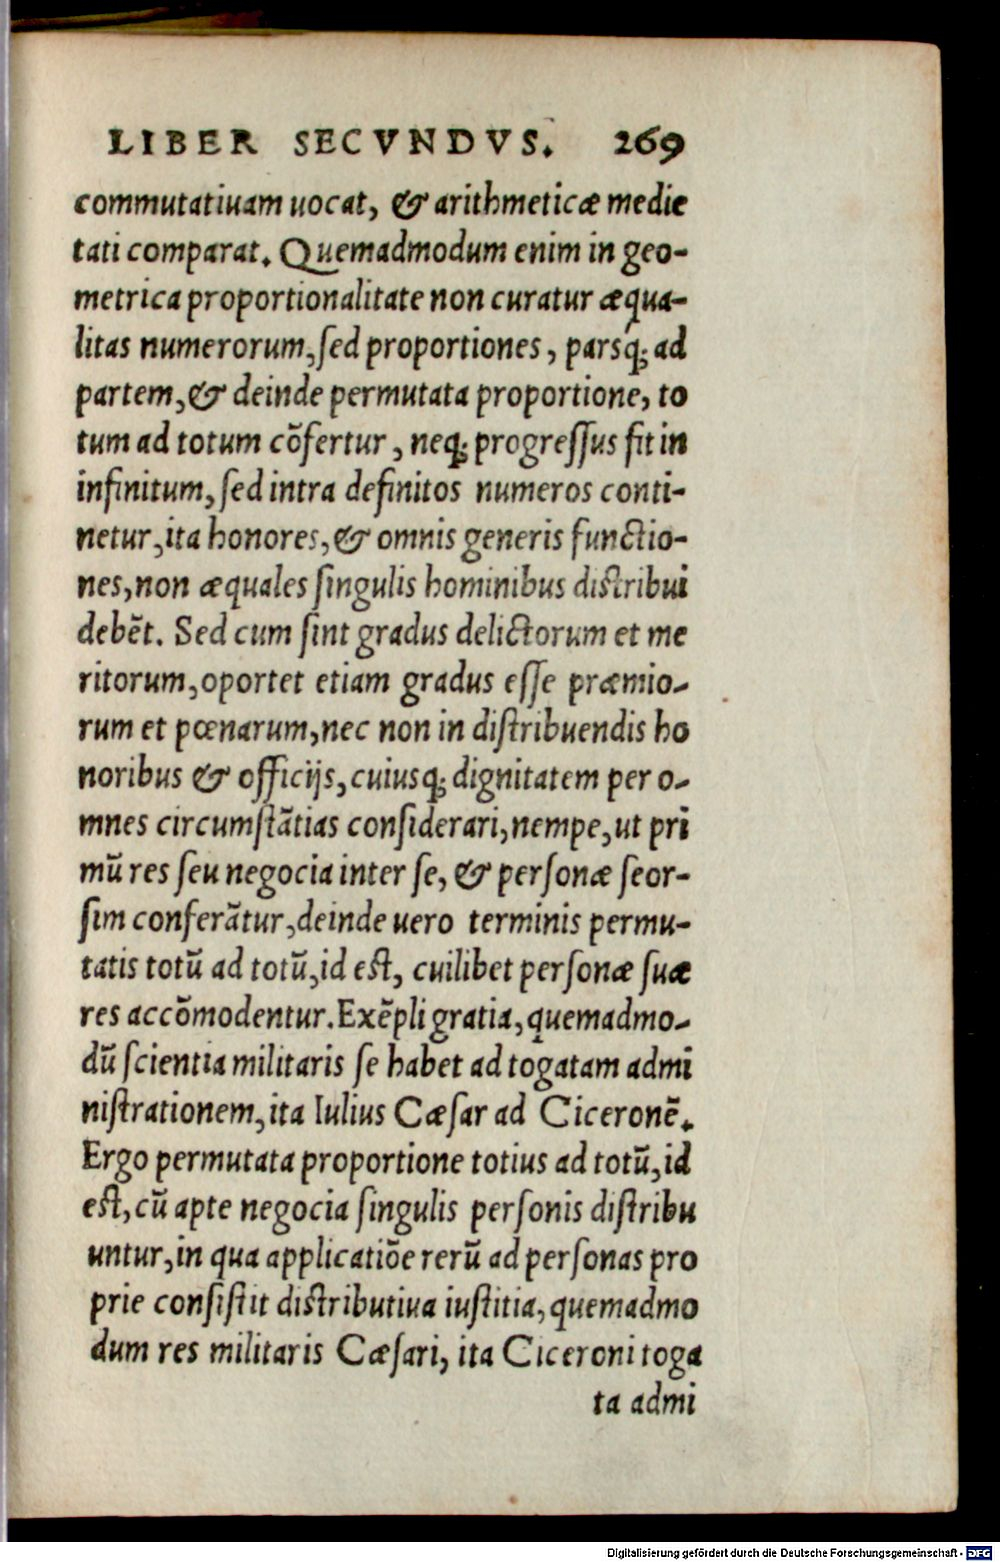 LIBER SECVNDVS. 269
commutatiuam uocat, & arithmeticæ medie
tati comparat. Quemadmodum enim in geo-
metrica proportionalitate non curatur æqua-
litas numerorum, ſed proportiones, parsq; ad
partem, & deinde permutata proportione, to
tum ad totum cōfertur, neq; progreſſus fit in
infinitum, ſed intra definitos numeros conti-
netur, ita honores, & omnis generis functio-
nes, non æquales ſingulis hominibus diſtribui
debēt. Sed cum ſint gradus delictorum et me
ritorum, oportet etiam gradus eſſe præmio-
rum et pœnarum, nec non in diſtribuendis ho
noribus & officijs, cuiusq; dignitatem per o-
mnes circumſtātias conſiderari, nempe, ut pri
mū res ſeu negocia inter ſe, & perſonæ ſeor-
ſim conferātur, deinde uero terminis permu-
tatis totū ad totū, id eſt, cuilibet perſonæ ſuæ
res accōmodentur. Exēpli gratia, quemadmo-
dū ſcientia militaris ſe habet ad togatam admi
niſtrationem, ita Iulius Cæſar ad Ciceronē.
Ergo permutata proportione totius ad totū, id
eſt, cū apte negocia ſingulis perſonis diſtribu
untur, in qua applicatiōe rerū ad perſonas pro
prie conſiſtit diſtributiua iuſtitia, quemadmo
dum res militaris Cæſari, ita Ciceroni toga
ta admi
Digitalisierung gefördert durch die Deutsche Forschungsgemeinschaft - DFG